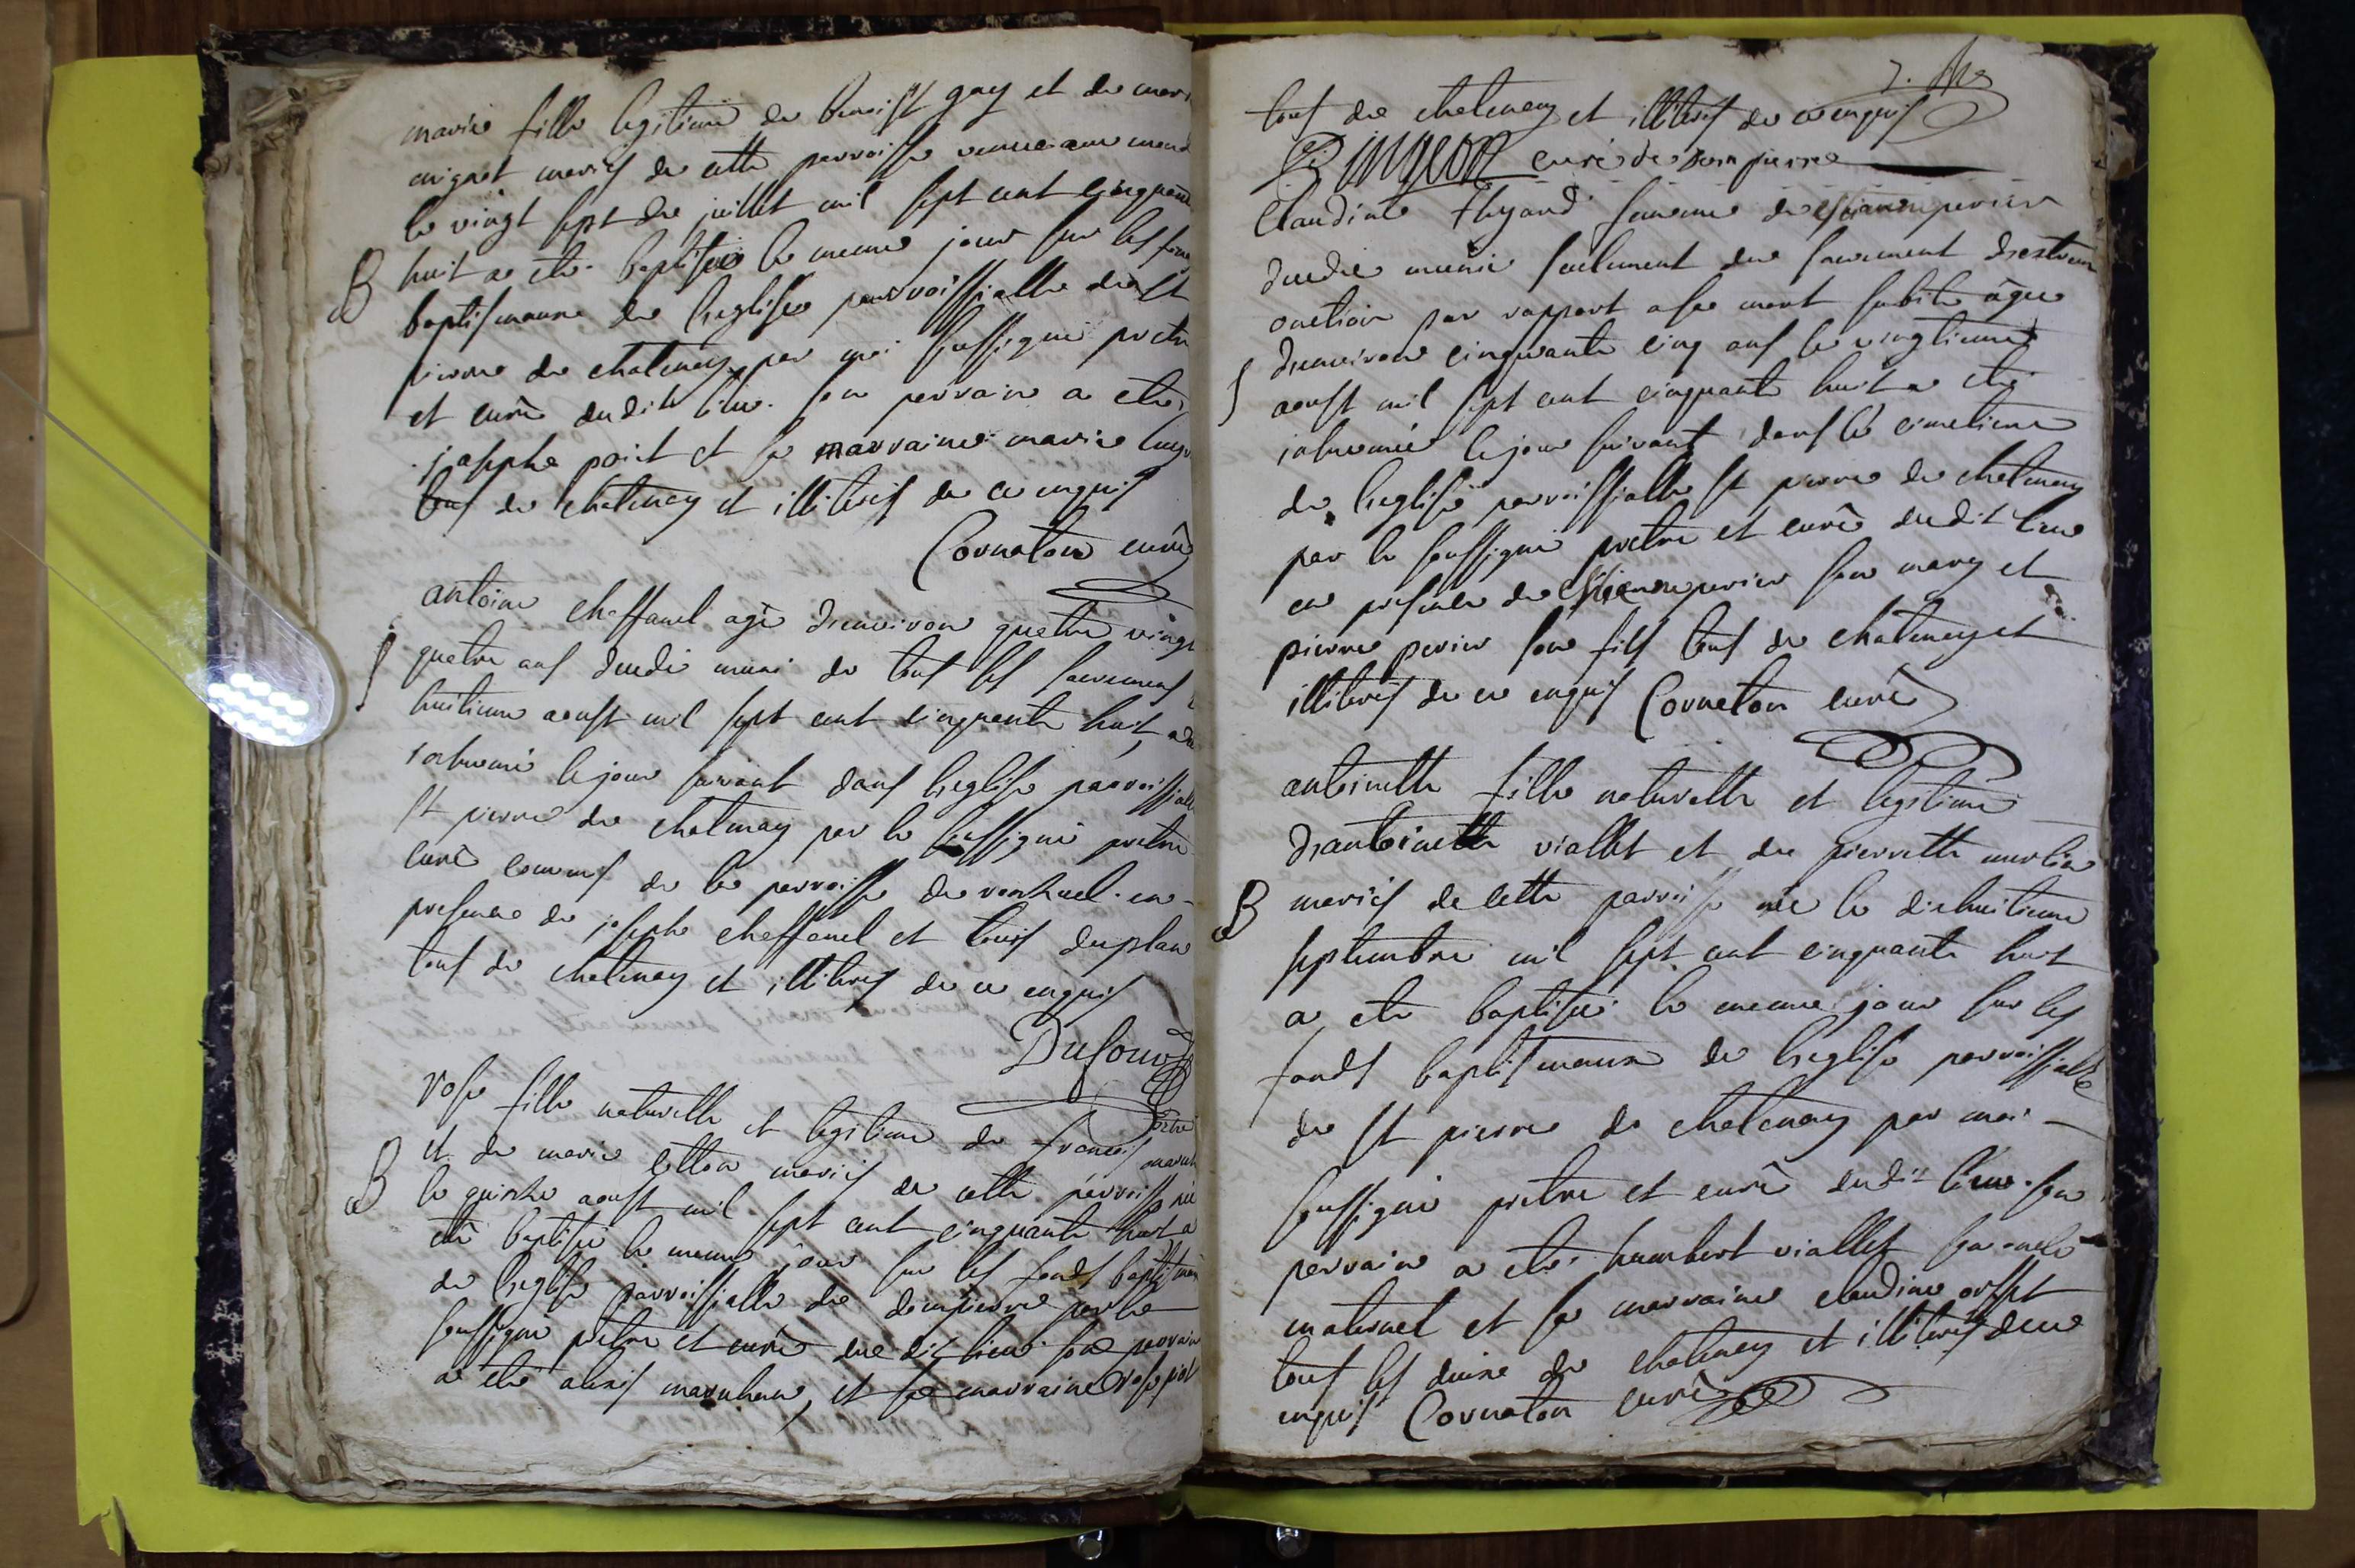 marie fille legitime de benoist gay et de mari
mignat mariés de cette parroisse venue au mond
le vingt sept de juillet mil sept cent cinquan
B
huit a eté baptisée le meme jour sur les fon
baptismaux de l'eglise parroissialle de st
pierre de chatenay par moi soussigné pretre
et curé dudit lieu. son parrain a eté
josephe point et sa marraine marie
tous de chatenay et illiterés de ce enquis
Cornaton curé
antoine cheffanel agé d'environ quatre vingt
quatre ans decedé muni de tous les sacremens
S
huitieme aoust mil sept cent cinquante huit a
inhumé le jour suivant dans l'eglise parroissiall
st pierre de chatenay par le soussigné pretre
curé de la parroisse de en
presence de josephe cheffanel et louis duplan
tous de chatenay et illiterés de ce enquis
Dufour
rose fille naturelle et legitime de francois
et de marie cotton mariés de cette parroisse née
B
le quinze aoust mil sept cent cinquante huit a
été baptisée le meme jour sur les fonds baptismau
de l'eglise parroissialle de dompierre par le
soussigné pretre et curé du dit lieu son parrain
a eté et sa marraine rose
tous de chatenay et illiterés de ce enquis
curé de dompierre
Claudine thyand femme de estienne perier
decedé munie seulement du sacrement d'extrem
onction par rapport a sa mort subite âgée
d'environ cinquante cinq ans le vingtieme
S
aoust mil sept cent cinquante huit a eté
inhumée le jour suivant dans le cimetiere
de l'eglise parroissialle st pierre de chatenay
par le soussigné pretre et curé dudit lieu
en presence de estienne perier son mary et
pierre perier son fils tous de chatenay et
illiterés de ce enquis Cornaton curé
antoinette fille naturelle et legitime
d'antoinette viallet et de pierrette
B
mariés de cette parroisse née le dixhuitieme
septembre mil sept cent cinquante huit
a eté baptisée le meme jour sur les
fonds baptismaux de l'eglise parroissialle
de st pierre de chatenay par moi
soussigné pretre et curé dudit lieu. son
parrain a eté humbert viallet son oncle
maternel et sa marraine claudine
tous les deux de chatenay et illiterés de ce
enquis Cornaton curé